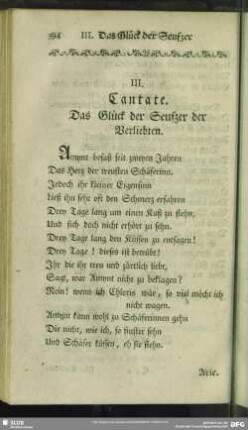 94 III. Das Glück der Seufzer
III.
Cantate.
Das Glück der Seufzer der
Verliebten.
Amynt besaß seit zweyen Jahren
Das Herz der treusten Schäferinn.
Jedoch ihr kleiner Eigensinn
Ließ ihn sehr oft den Schmerz erfahren
Drey Tage lang um einen Kuß zu flehn,
Und sich doch nicht erhört zu sehn.
Drey Tage lang den Küssen zu entsagen!
Drey Tage! dieses ist betrübt!
Ihr die ihr treu und zärtlich liebt,
Sagt, war Amynt nicht zu beklagen?
Nein! wenn ich Chloris wär, so viel möcht ich
nicht wagen.
Amynt kann wohl zu Schäferinnen gehn
Die mehr, wie ich, so finster sehn
Und Schäfer küssen, eh sie flehn.
Arie.
SLUB
DFG